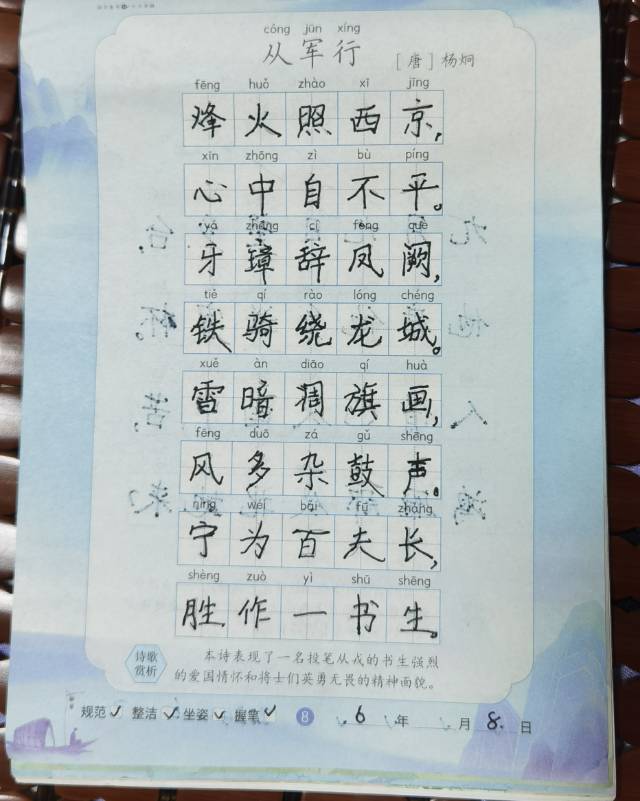 cóng jūn xíng
从军行
[唐] 杨炯
fēng huǒ zhào xī jīng
烽火照西京,
xīn zhōng zì bù píng
心中自不平。
yá zhāng cí fèng què
牙璋辞凤阙,
tiě qí rào lóng chéng
铁骑绕龙城。
xuě àn diāo qí huà
雪暗凋旗画,
fēng duō zá gǔ shēng
风多杂鼓声。
nìng wéi bǎi fū zhǎng
宁为百夫长,
shèng zuò yì shū shēng
胜作一书生。
诗歌
赏析
本诗表现了一名投笔从戎的书生强烈
的爱国情怀和将士们英勇无畏的精神面貌。
规范✓ 整洁✓ 坐姿✓ 握笔✓ 8 6年 月8日